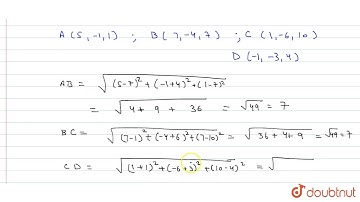 A (5, -1, 1) ; B (7, -4, 7) ; C (1, -6, 10)
D (-1, -3, 4)
AB = √(5-7)² + (-1+4)² + (1-7)²
= √4 + 9 + 36 = √49 = 7
BC = √(7-1)² + (-4+6)² + (7-10)² = √36 + 4 + 9 = √49 = 7
CD = √(1+1)² + (-6+3)² + (10-4)² = √
doubtnut